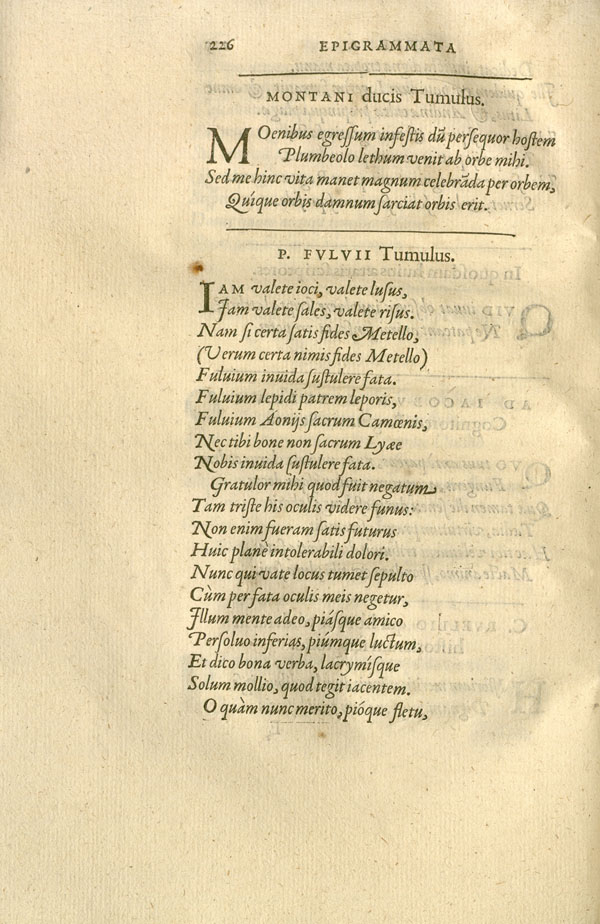 226 EPIGRAMMATA
MONTANI ducis Tumulus.
MOenibus egreſſum infeſtis dũ perſequor hoſtem
Plumbeolo lethum venit ab orbe mihi.
Sed me hinc vita manet magnum celebrãda per orbem,
Quique orbis damnum ſarciat orbis erit.
P. FVLVII Tumulus.
IAM valete ioci, valete luſus,
Jam valete ſales, valete riſus.
Nam ſi certa satis fides Metello,
(Verum certa nimis fides Metello)
Fuluium inuida ſuſtulere fata.
Fuluium lepidi patrem leporis,
Fuluium Aonijs ſacrum Camœnis,
Nec tibi bone non ſacrum Lyæe
Nobis inuida ſuſtulere fata.
Gratulor mihi quod fuit negatum
Tam triſte his oculis videre funus:
Non enim fueram ſatis futurus
Huic planè intolerabili dolori.
Nunc qui vate locus tumet ſepulto
Cùm per fata oculis meis negetur,
Illum mente adeo, piáſque amico
Perſoluo inferias, piúmque luctum,
Et dico bona verba, lacrymíſque
Solum mollio, quod tegit iacentem.
O quàm nunc meritò, pióque fletu,